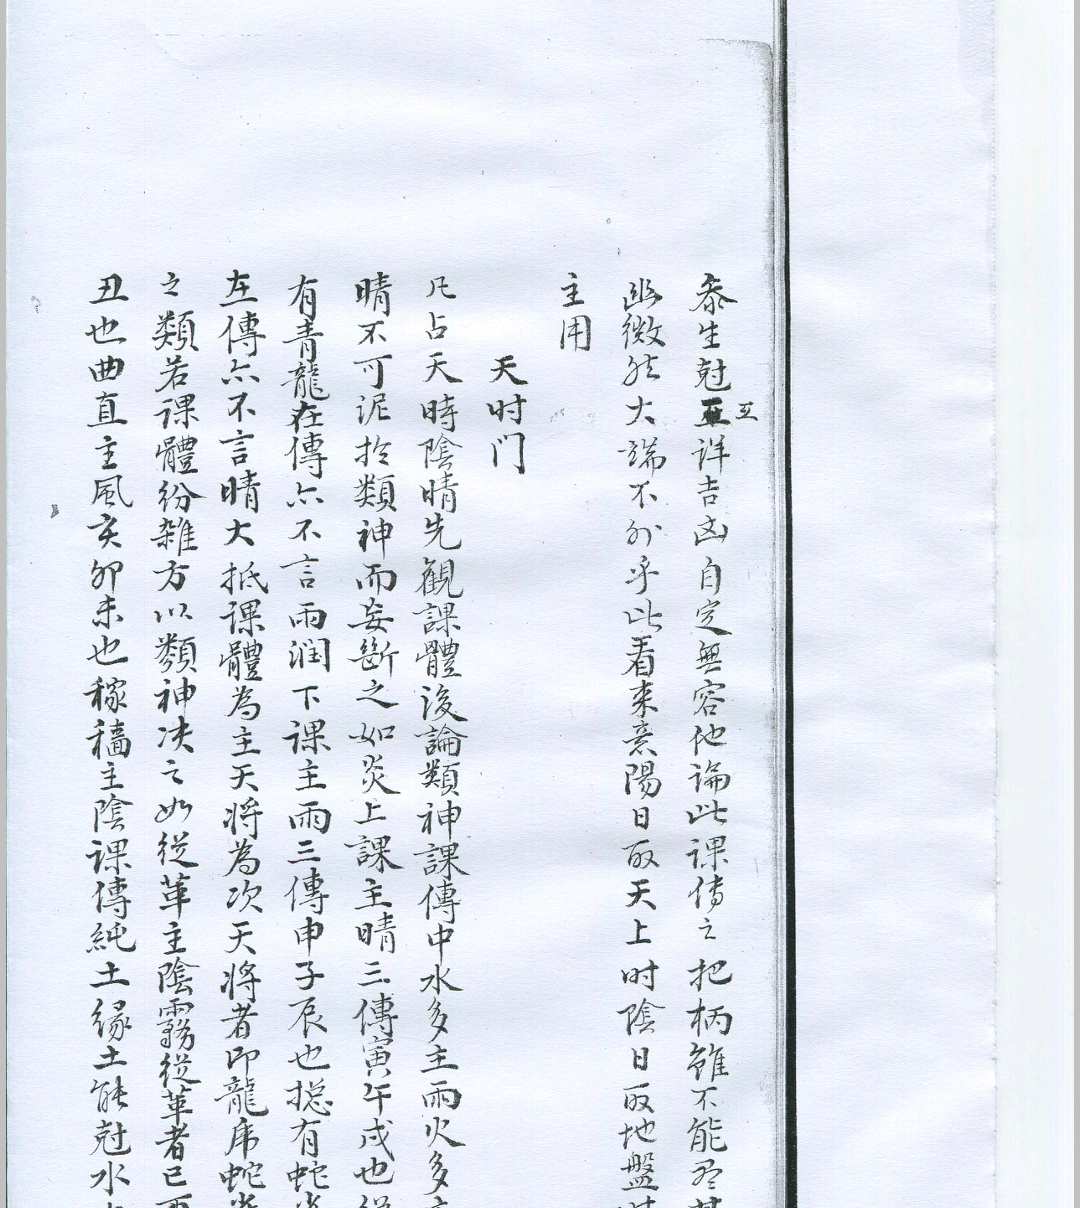 叅生尅互詳吉凶自定無容他論此課传之把柄雖不能尽其
幽微然大端不外乎此看来意陽日取天上时陰日取地盤时
主用
天时门
凡占天時陰晴先観課體後論類神課傳中水多主雨火多主
晴不可泥於類神而妄斷之如炎上課主晴三傳寅午戌也縱
有青龍在傳亦不言雨润下課主雨三傳申子辰也摠有蛇雀
在傳亦不言晴大抵課體為主天将為次天将者即龍虎蛇雀
之類若课體紛雜方以類神决之如従革主陰霧従革者巳酉
丑也曲直主風亥卯未也稼穡主陰課傳純土緣土能尅水